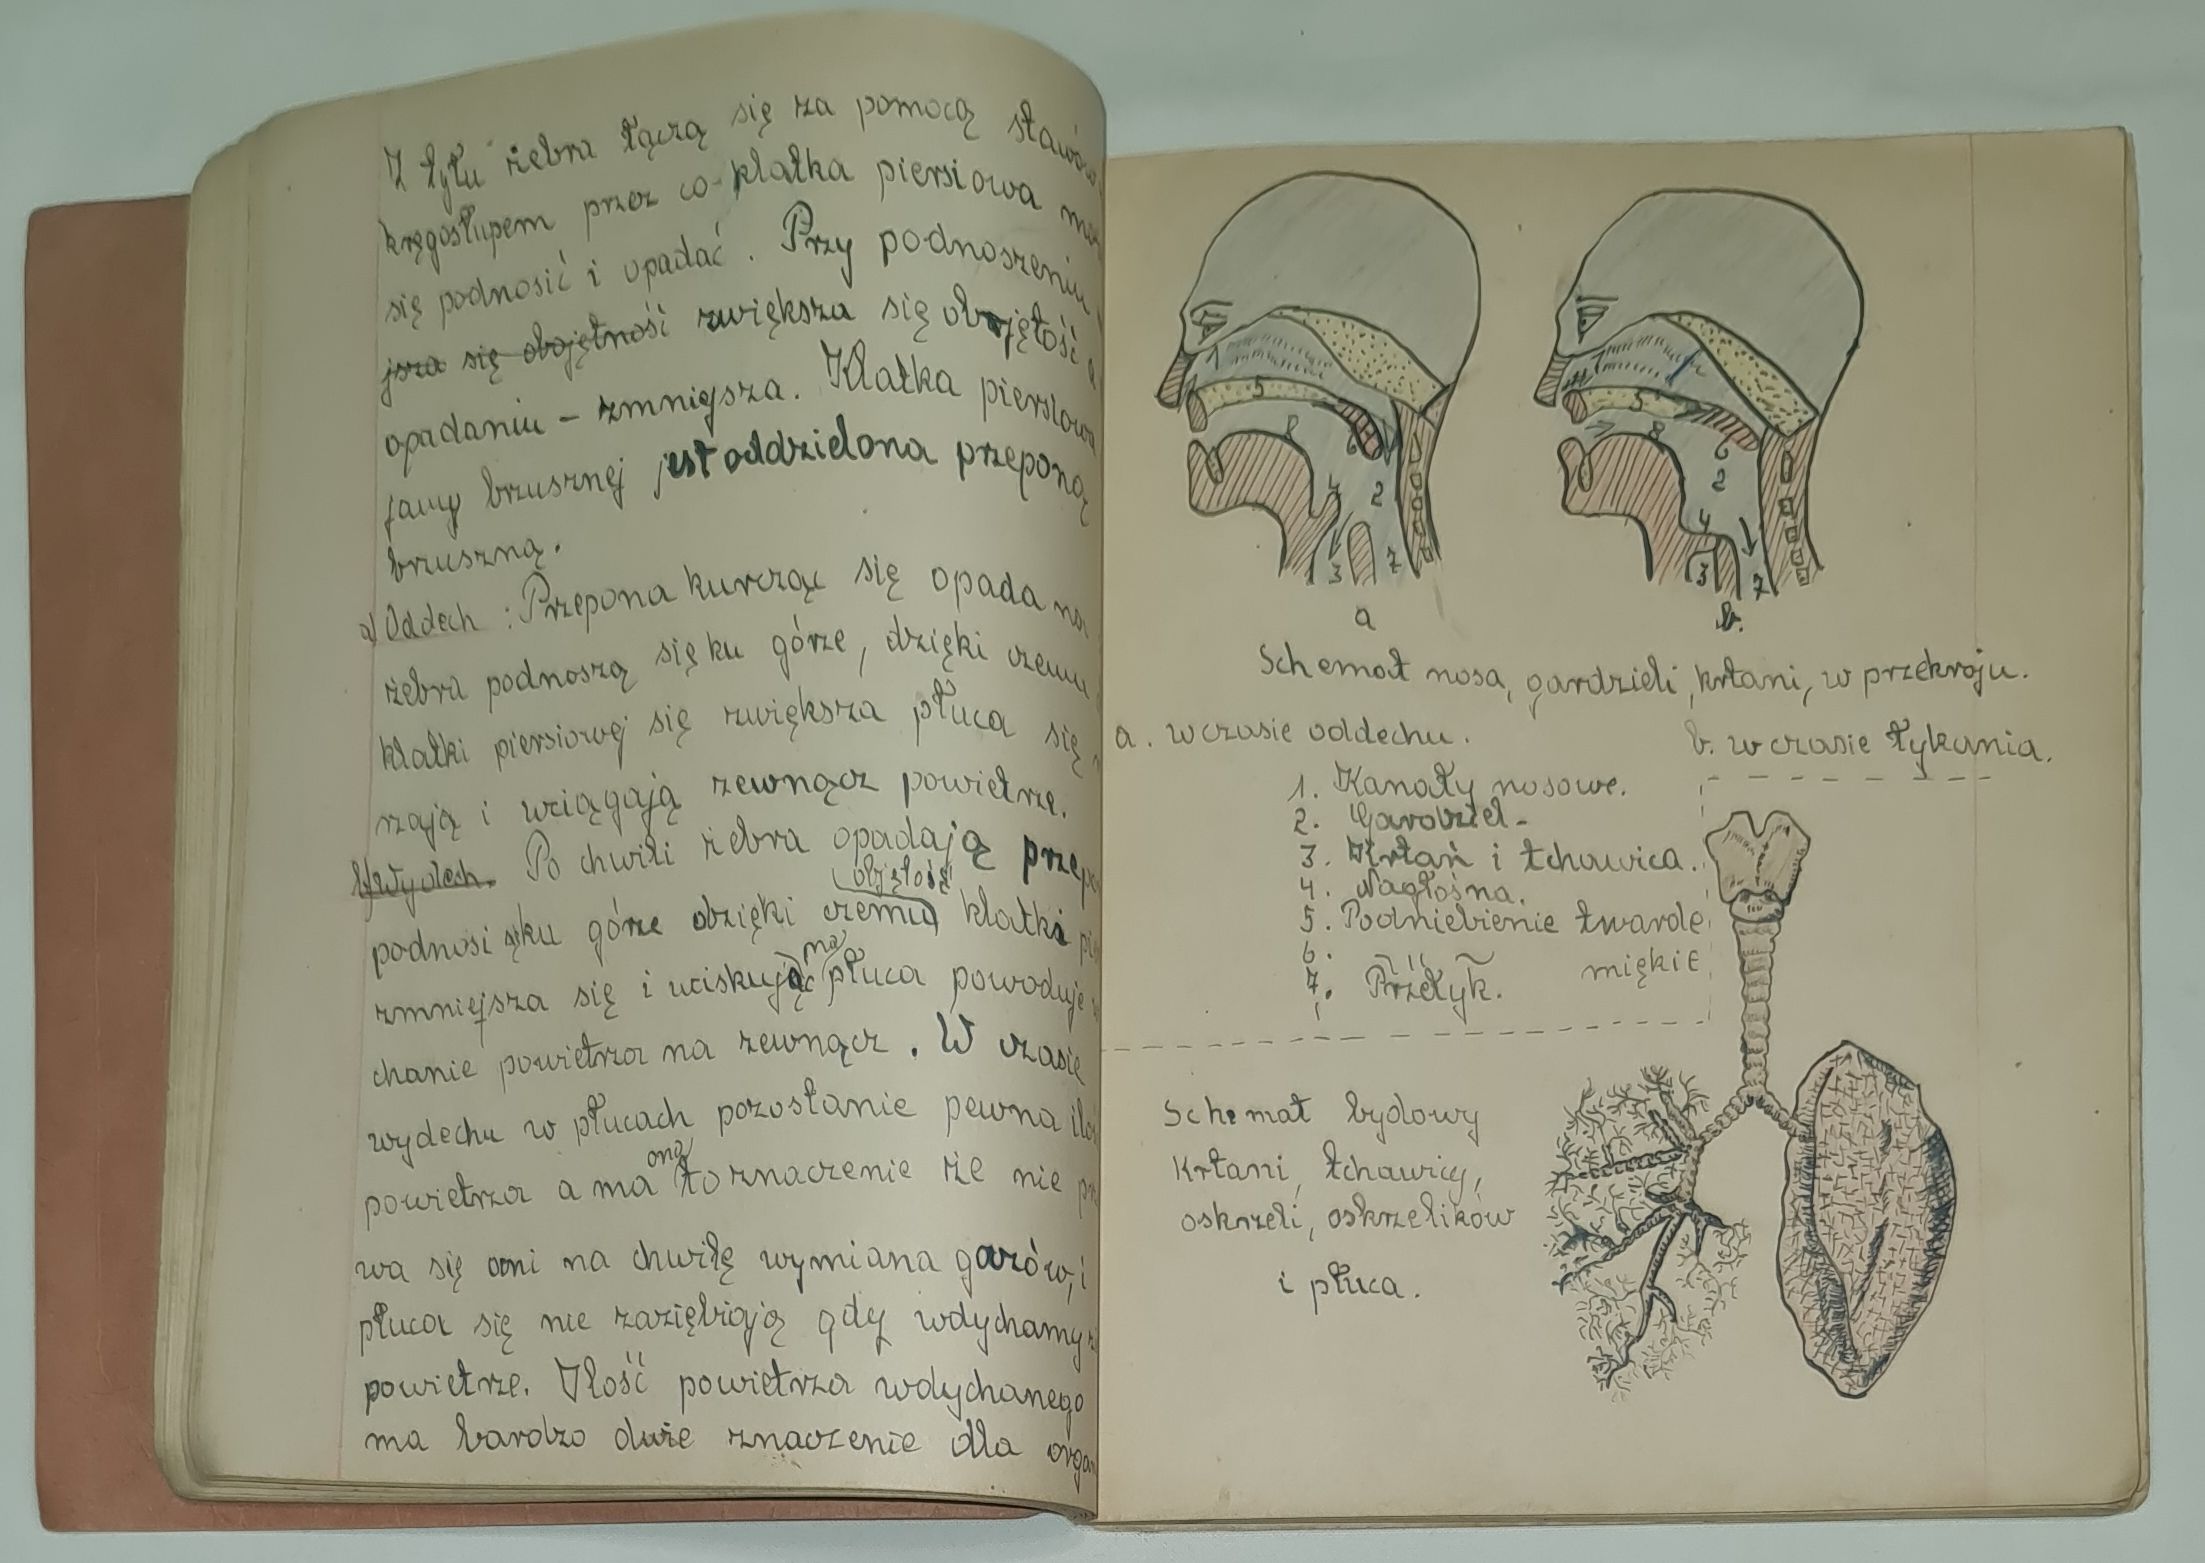 Z tyłu żebra łączą się za pomocą stawów
kręgosłupem przez co klatka piersiowa
się podnosić i opadać. Przy podnoszeniu
jsza się obojętność zwiększa się objętość
opadaniu – zmniejsza. Klatka piersiowa
jamy brzusznej jest oddzielona przeponą
brzuszną.
a) Oddech: Przepona kurcząc się opada na
żebra podnoszą się ku górze, dzięki czemu
klatki piersiowej się zwiększa płuca się
rzają i wciągają zewnącz powietrze.
b) Wydech. Po chwili żebra opadają
objętość
podnosi się ku górze dzięki czemu klatki
na
zmniejsza się i uciskając płuca powoduje
chanie powietrza na zewnącz. W czasie
wydechu w płucach pozostanie pewna
ona
powietrza a ma to znaczenie że nie
wa się ani na chwilę wymiana gazów, i
płuca się nie zaziębiają gdy wdychamy
powietrze. Ilość powietrza wdychanego
ma bardzo duże znaczenie dla
1 5 8 6 4 2 3 7
1 5 8 6 2 4 3 7
a b.
Schemat nosa, gardzieli, krtani, w przekroju.
a. w czasie oddechu. b. w czasie łykania.
1. Kanały nosowe.
2. Gardziel -
3. Krtań i tchawica.
4. Nagłośna.
5. Podniebienie twarde
6. " miękie
7. Przełyk.
Schemat bydowy
krtani, tchawicy,
oskrzeli, oskrzelików
i płuca.